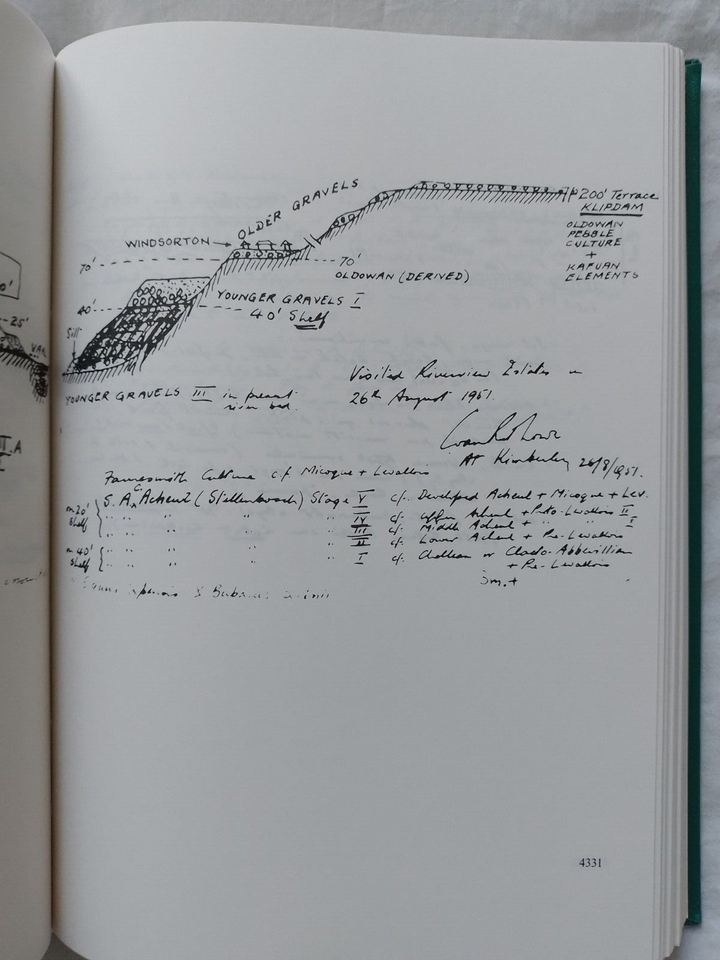 OLDER GRAVELS
200' Terrace
KLIPDAM
WINDSORTON
OLDOWAN
PEBBLE
CULTURE
+
KAFUAN
ELEMENTS
70'
70'
OLDOWAN (DERIVED)
YOUNGER GRAVELS I
40'
40' Shelf
25'
Silt
VAAL
YOUNGER GRAVELS III in present
river bed.
Visited Riverview Estates on
26th August 1951.
At Kimberley 26/8/1951.
Fauresmith Culture cf Micoque + Levallois
on 20' Shelf
S. A. Acheul (Stellenbosch) Stage V cf. Developed Acheul + Micoque + Lev.
" " " " IV cf. Upper Acheul + Proto-Levallois II
" " " " III cf. Middle Acheul + " " I
on 40' Shelf
" " " " II cf. Lower Acheul + Pre-Levallois
" " " " I cf. Chellean or Clacto-Abbevillian
+ Pre-Levallois
4331